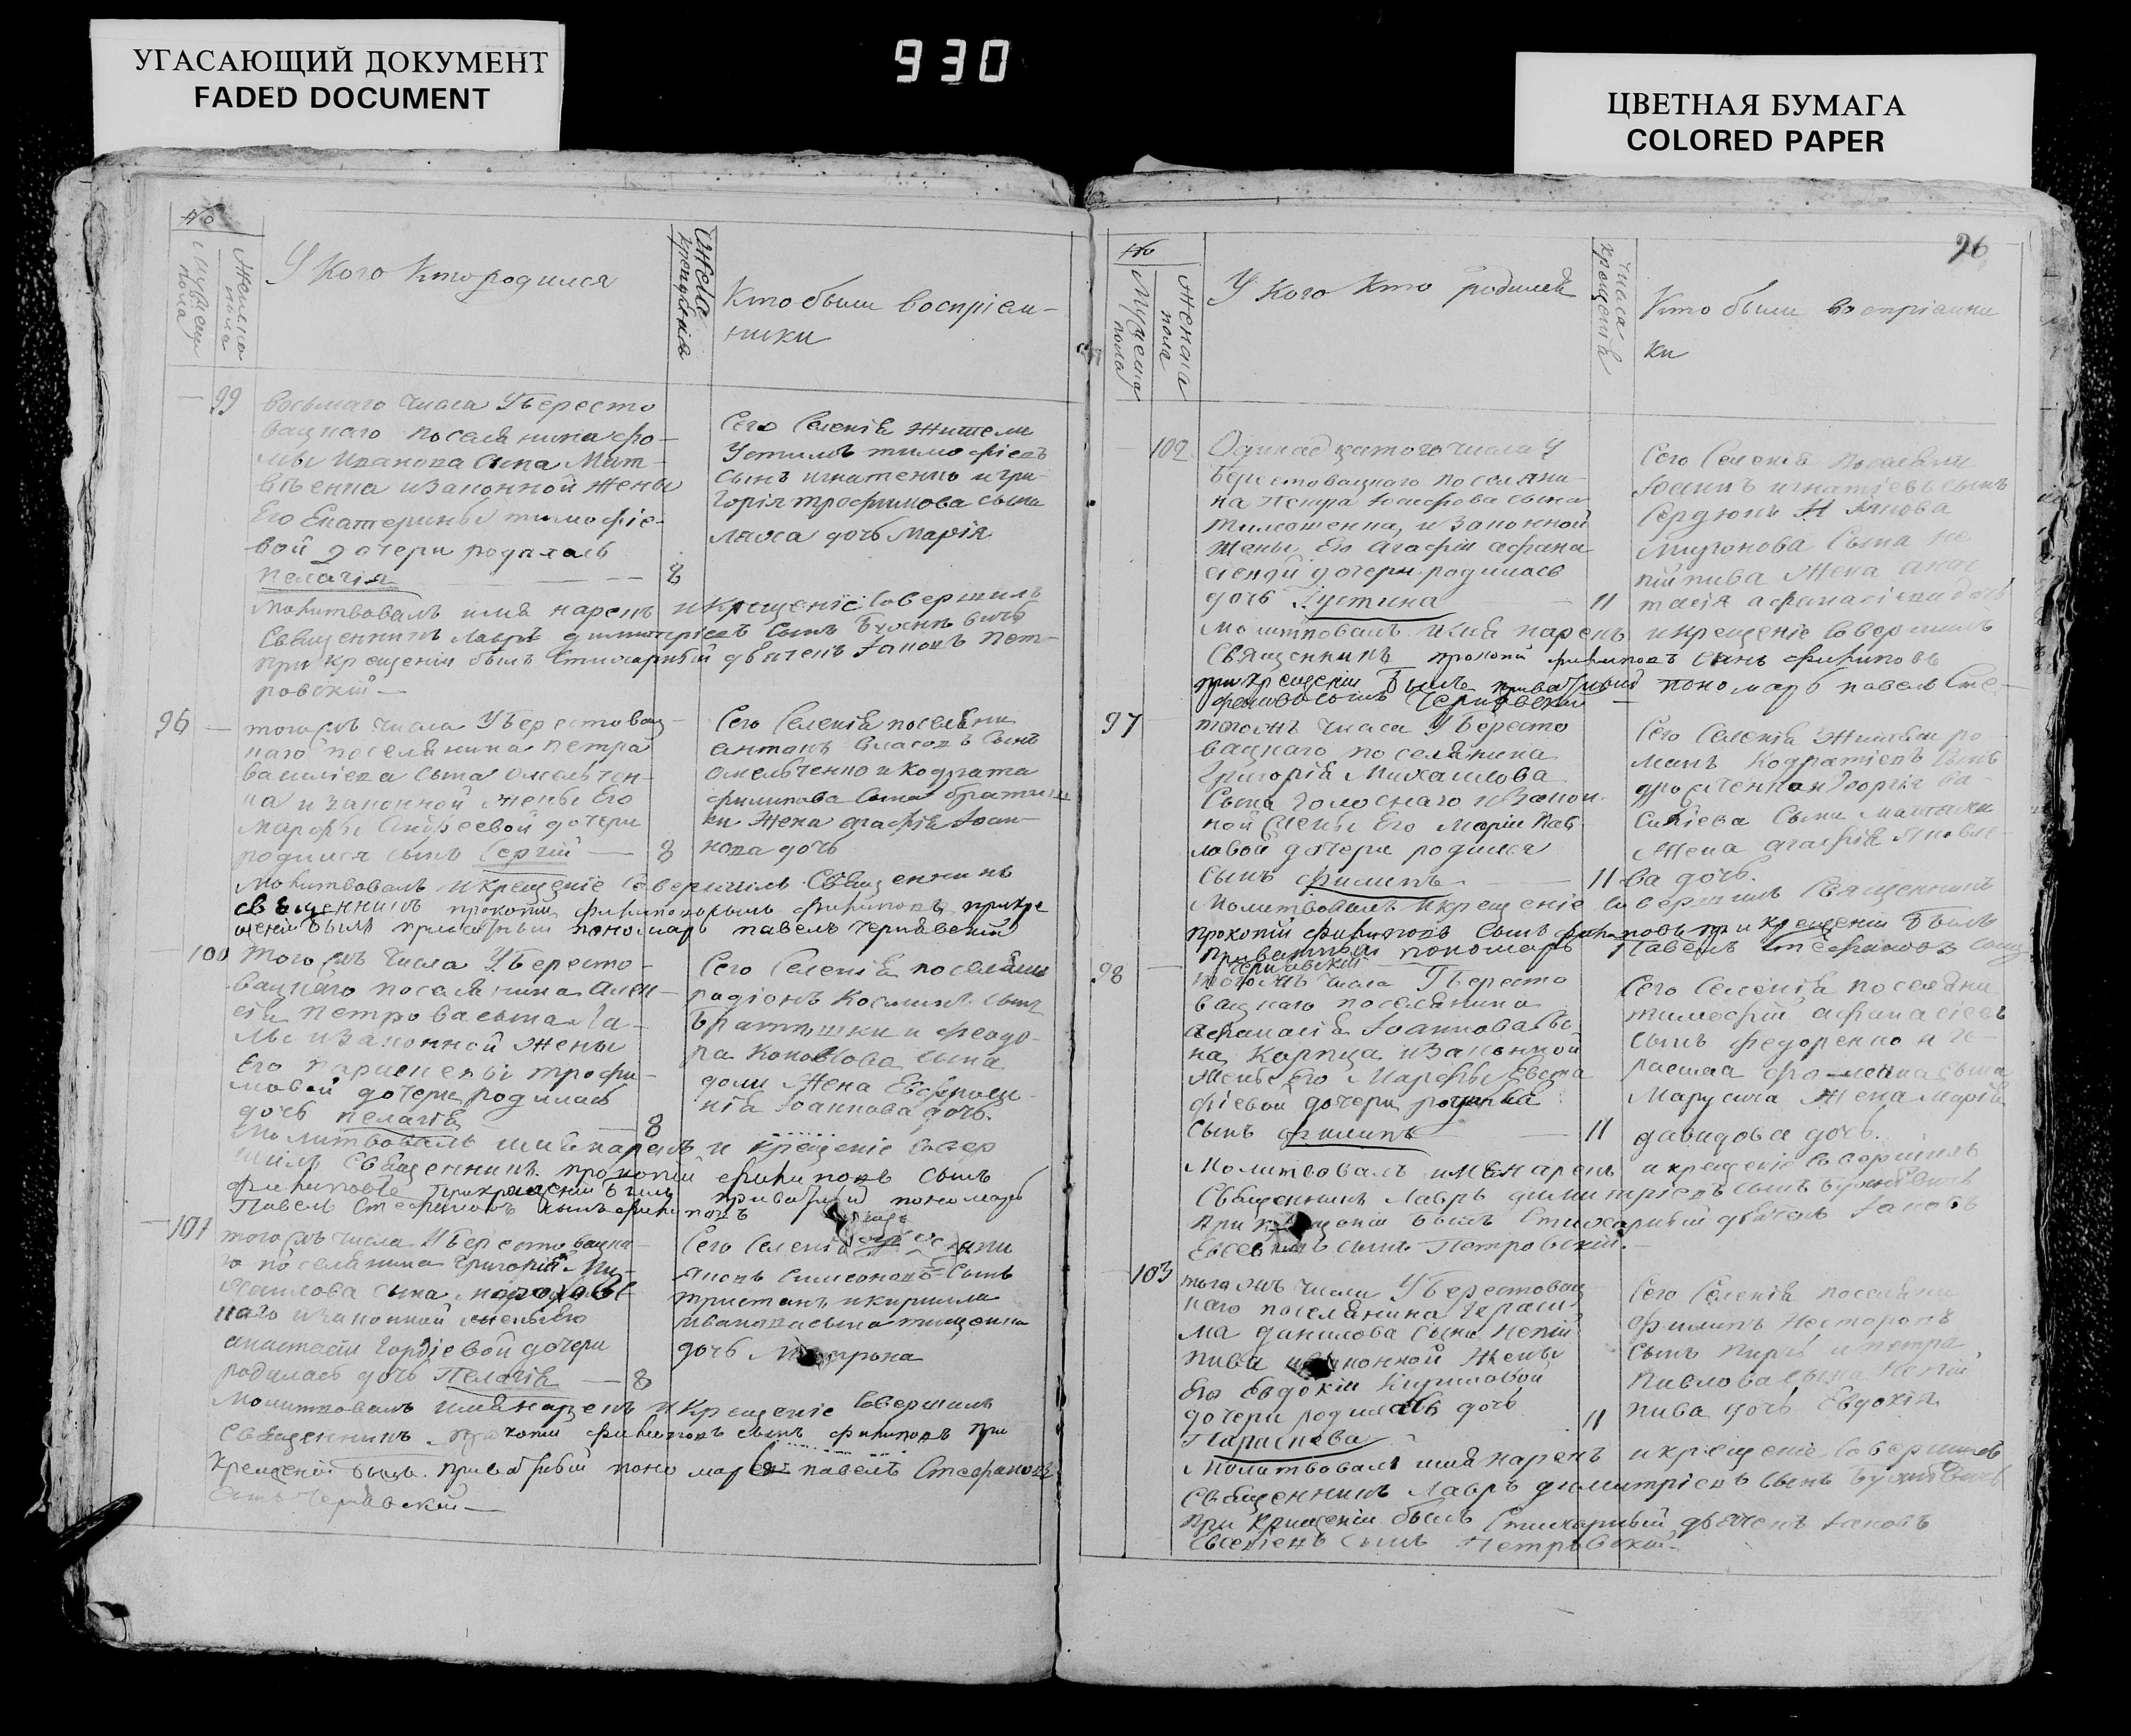 УГАСАЮЩИЙ ДОКУМЕНТ
FADED DOCUMENT
930
ЦВЕТНАЯ БУМАГА
COLORED PAPER
№
Мужеска пола
Женска пола
У кого кто родился
Числа крещенія
Кто были воспріем-
ники
99
восьмаго числа У Бересто
вацкаго поселянина Фо-
мы Иванова сына Мат-
вѣенка и законной жены
Его Екатерины тимофіе-
вой дочери родилась
Пелагія 8
Сего Селенія жители
Устимъ тимофіевъ
сынъ игнатенко и гри-
горія трофимова сына
дочь Марія
Молитвовалъ имя нарекъ и крещеніе Совершилъ
Священникъ Лавръ димитріевъ Сынъ
при крещеніи былъ Стихарный дьячекъ Іаковъ Пет-
ровскій
96
того жъ числа У Берестовац-
каго поселянина Петра
василіева сына Омельчен-
ка и законной жены Его
Марфы Андреевой дочери
родился сынъ Сергій 8
Сего Селенія поселяни
антонъ власовъ Сынъ
Омельченко и Кодрата
филипова Сына братуш
ки жена агафія Іоан-
нова дочь
Молитвовалъ и крещеніе Совершилъ Священникъ
священникъ прокопій филиповъ сынъ филиповъ при кре
щеніи былъ приватный пономарь павелъ Чернявскій
100
Того жъ числа У Бересто-
вацкаго поселянина Алек-
сія Петрова сына Ла-
мы и законной жены
Его трофи-
мовой дочери родилась
дочь пелагія 8
Сего Селенія поселяни
радіонъ Косминъ сынъ
братушки и феодо-
ра Кононова сына
доли жена Евфроси-
нія Іоаннова дочь.
Молитвовалъ имя нарекъ и крещеніе Совер
шилъ Священникъ прокопій филиповъ сынъ
филиповъ при крещеніи былъ приватный пономарь
Павелъ Стефановъ сынъ
101
того жъ числа У Берестовацка-
го поселянина Григорія Ми-
хаилова сына
наго и законной жены Его
анастасіи Гордіевой дочери
родилась дочь Пелагія 8
Сего Селенія
Яковъ Симеоновъ Сынъ
тристанъ и кирилла
Иванова сына тищенка
дочь Матрона
Молитвовалъ имя нарекъ и Крещеніе Совершилъ
Священникъ прокопій филиповъ сынъ филиповъ при
Крещеніи былъ приватный пономарь павелъ Стефановъ
сынъ Чернявскій
26
№
Мужеска пола
Женска пола
У кого кто родился
Числа крещенія
Кто были воспріемни
ки
102
Одинадцатого числа У
Берестовацкаго поселяни-
на Петра Іосифова сына
тимошенка, и законной
жены Его Агафіи афана
сіевой дочери родилась
дочь Іустина 11
Сего Селенія поселяни
Іоаннъ игнатіевъ сынъ
Сердюкъ и Якова
Миронова Сына не
пійпива жена анас
тасія афанасіева дочь
Молитвовалъ имя нарекъ и крещеніе Совершилъ
Священникъ прокопій филиповъ сынъ филиповъ
при крещеніи былъ приватный пономарь павелъ Сте-
фановъ сынъ Чернявскій
97
того жъ числа У Бересто
вацкаго поселянина
Григорія Михаилова
Сына Голоснаго и закон-
ной жены Его Маріи Пав-
ловой дочери родился
сынъ филипъ 11
Сего Селенія жители ро
манъ Кодратіевъ сынъ
Георгія Са-
Сына
жена агафія Яковле-
ва дочь.
Молитвовалъ и крещеніе Совершилъ Священникъ
прокопій филиповъ сынъ филиповъ при крещеніи былъ
приватный пономарь Павелъ Стефановъ сынъ
Чернявскій
98
того жъ числа У Бересто
вацкаго поселянина
афанасія Іоаннова Сы-
на Карпца и законной
жены Его Марфы Евста
фіевой дочери родился
сынъ филипъ 11
Сего Селенія поселяни
тимофій афанасіевъ
сынъ федоренко и ге-
расима сына
Марусича жена Марія
давидова дочь.
Молитвовалъ имя нарекъ и крещеніе Совершилъ
Священникъ Лавръ димитріевъ сынъ
при крещеніи былъ Стихарный дьячекъ Іаковъ
сынъ Петровскій.
103
того жъ числа У Берестовац
каго поселянина Гераси-
ма данилова сына Непій
пива и законной жены
Его Евдокіи Кириловой
дочери родилась дочь 11
Параскева
Сего Селенія поселяни
филипъ Несторовъ
сынъ и петра
Павлова сына Непій
пива дочь Евдокія
Молитвовалъ имя нарекъ и крещеніе Совершилъ
Священникъ Лавръ димитріевъ сынъ
при крещеніи былъ Стихарный дьячекъ Іаковъ
сынъ Петровскій.